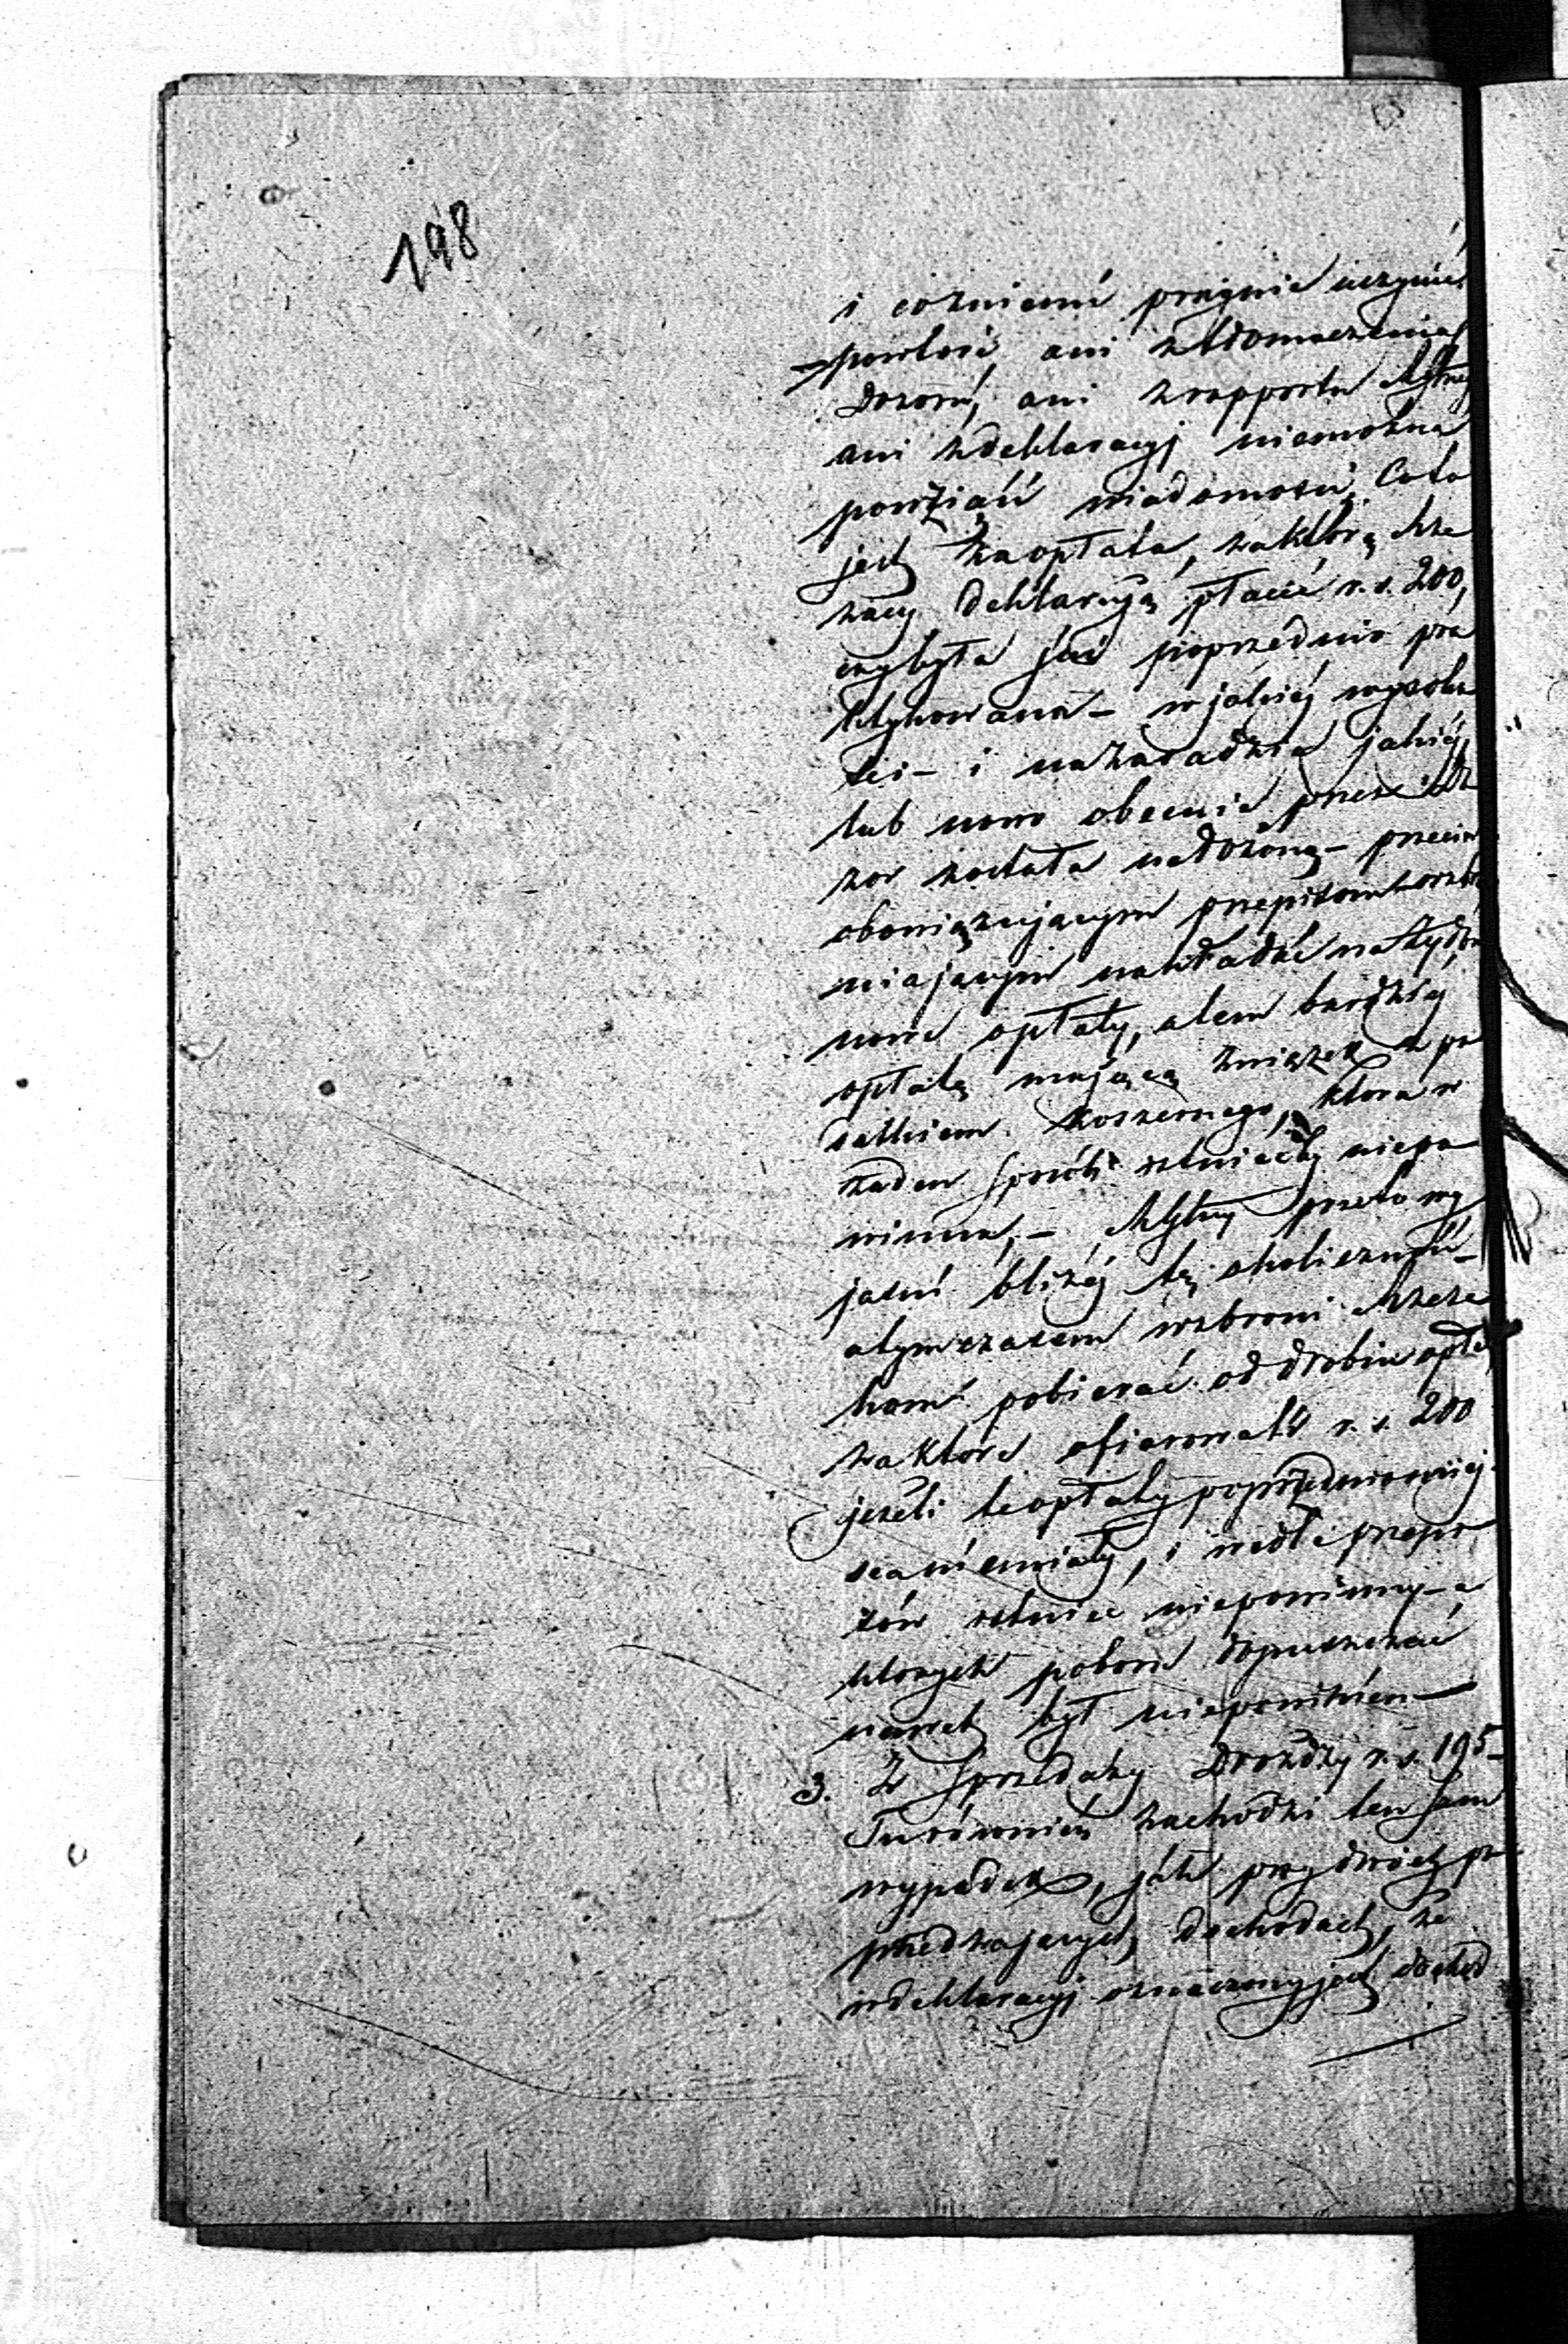 198
i cozniemi pragnie uczynić
powtóre, ani z tłomaczenia
Dozoru, ani z rapportu
ani z deklaracyj niemożna
powziąść wiadomości, Co to
jest za opłata, za którą Rze
zacy deklarują płacić r. s. 200,
czy była już poprzednio pra
ktykowana – w jakiéj wysoko
ści – i na zasadzie jakiéj
lub nowo obecnie przez Do
zor została nałożona – przeciw
obowiązującym przepisom
niającym nakładać na Żydów
nowe opłaty, a tem bardziéj
opłatę mającą związek z po
datkiem koszernego, która w
żaden sposób istnieć by niepo
winna, – przeto wy
jaśni bliżéj tę okoliczność –
a tym czasem wzbroni Rzeza
kom pobierać od drobiu opłat
za które ofiarowali r. s. 200
jeżeli te opłaty poprzednio miej
sca niemiały, i wedle przepi
sów istnieć niepowinny – a
których poboru dopuszczać
nawet był niepowinien —
3. Z Sprzedaży Drożdży r. s. 195 –
Tu równiéż zachodzi ten sam
wypadek, jak przy dwóch po
przedzających dochodach, że
w deklaracyj oznaczony jest dochód